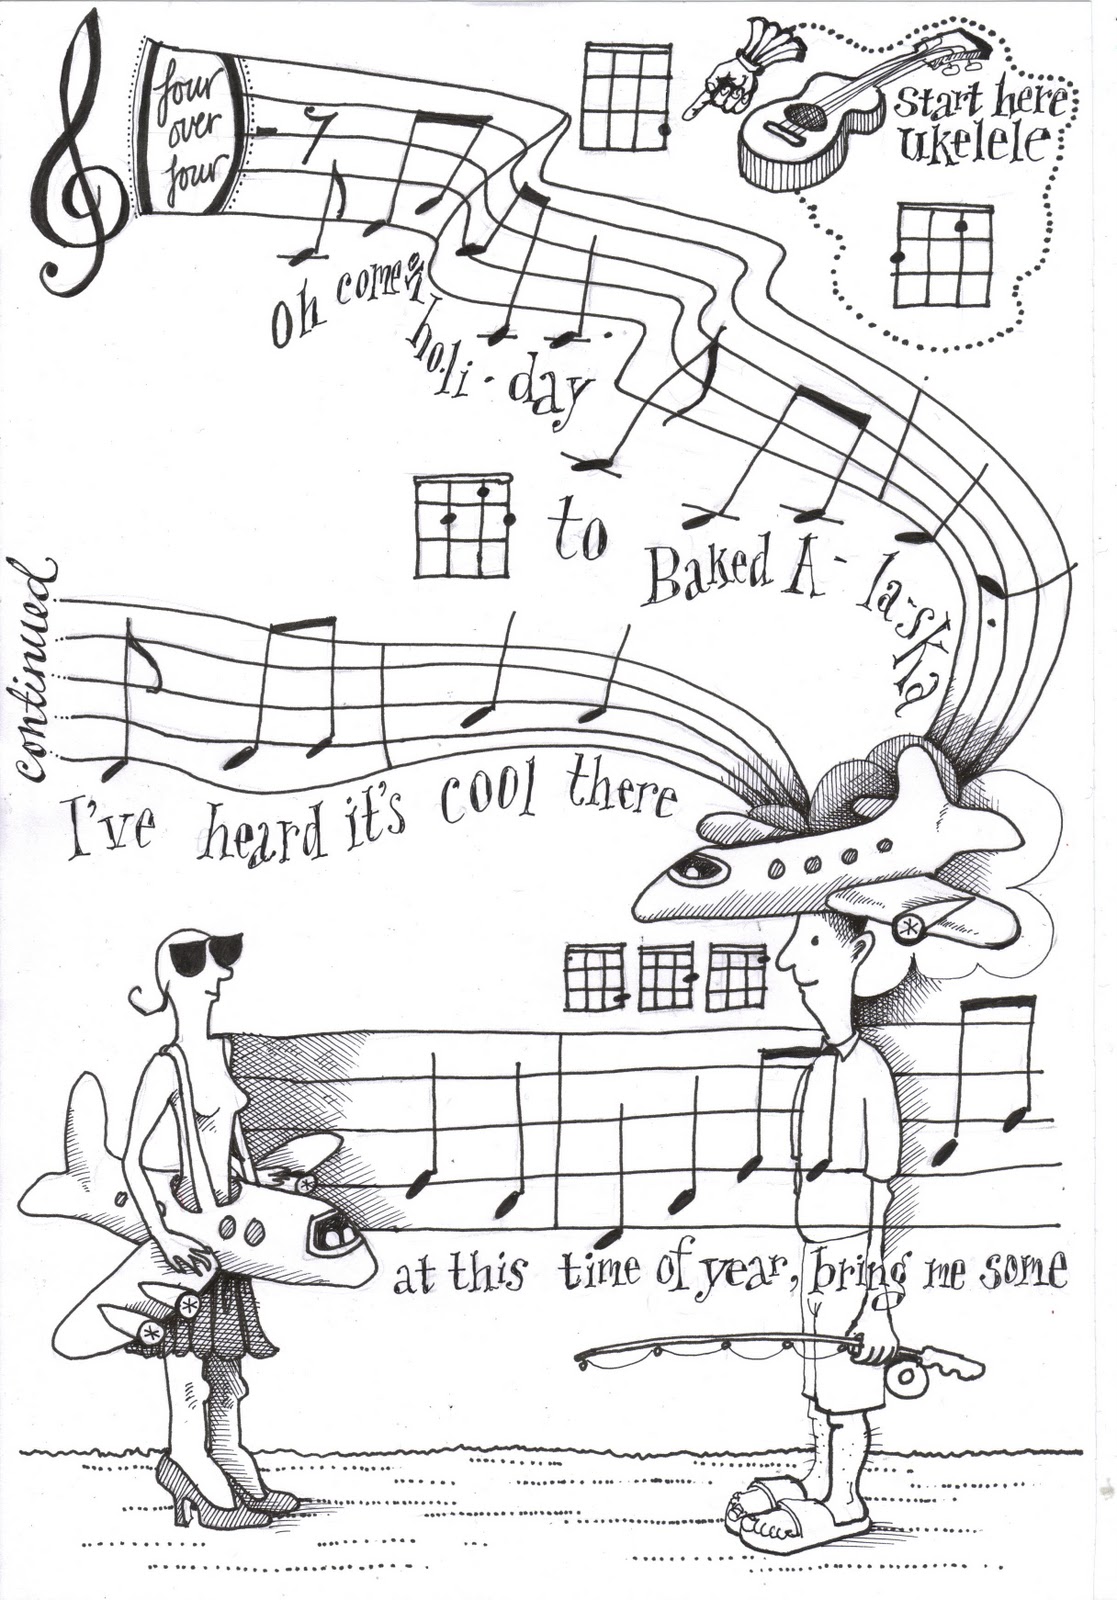 four
over
four
start here
ukelele
oh come on holi-day
to Baked A-la-ska
continued
I've heard it's cool there
at this time of year, bring me some